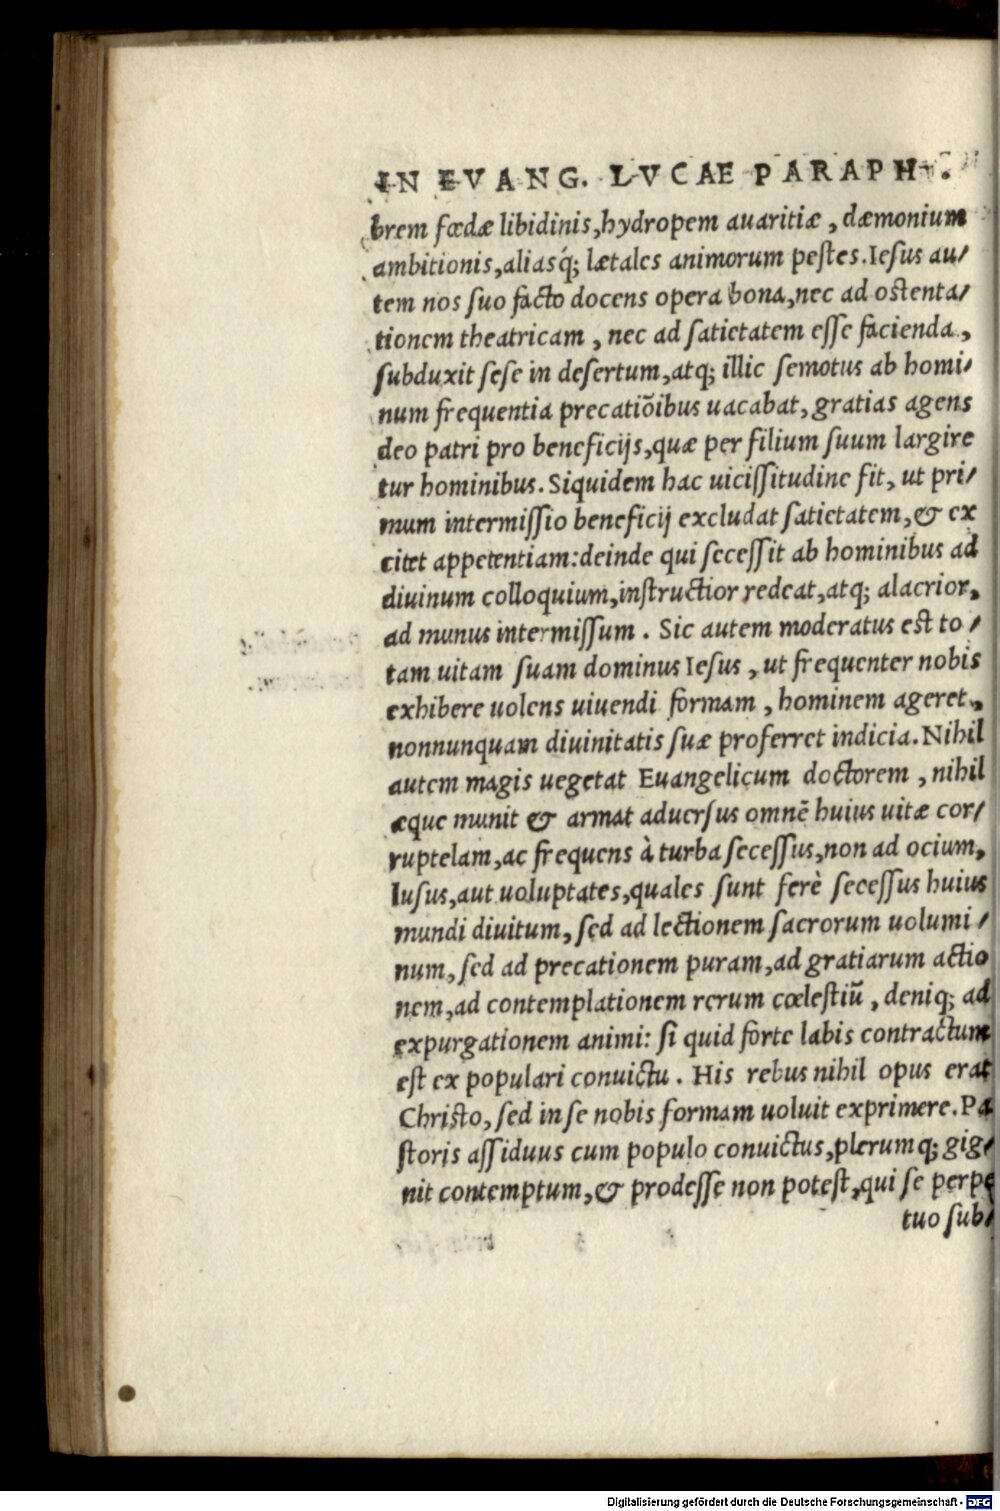 IN EVANG. LVCAE PARAPH.
brem fœdæ libidinis, hydropem auaritiæ, dæmonium
ambitionis, aliasq́; lætales animorum pestes. Iesus au/
tem nos suo facto docens opera bona, nec ad ostenta/
tionem theatricam, nec ad satietatem esse facienda,
subduxit sese in desertum, atq; illic semotus ab homi/
num frequentia precatiõibus uacabat, gratias agens
deo patri pro beneficijs, quæ per filium suum largire
tur hominibus. Siquidem hac uicissitudine fit, ut pri/
mum intermissio beneficij excludat satietatem, & ex
citet appetentiam: deinde qui secessit ab hominibus ad
diuinum colloquium, instructior redeat, atq; alacrior,
ad munus intermissum. Sic autem moderatus est to/
tam uitam suam dominus Iesus, ut frequenter nobis
exhibere uolens uiuendi formam, hominem ageret,
nonnunquam diuinitatis suæ proferret indicia. Nihil
autem magis uegetat Euangelicum doctorem, nihil
æque munit & armat aduersus omnẽ huius uitæ cor/
ruptelam, ac frequens à turba secessus, non ad ocium,
lusus, aut uoluptates, quales sunt ferè secessus huius
mundi diuitum, sed ad lectionem sacrorum uolumi/
num, sed ad precationem puram, ad gratiarum actio
nem, ad contemplationem rerum cœlestiũ, deniq; ad
expurgationem animi: si quid forte labis contractum
est ex populari conuictu. His rebus nihil opus erat
Christo, sed in se nobis formam uoluit exprimere. Pa
storis assiduus cum populo conuictus, plerumq; gig/
nit contemptum, & prodesse non potest, qui se perpe
tuo sub/
Digitalisierung gefördert durch die Deutsche Forschungsgemeinschaft - DFG